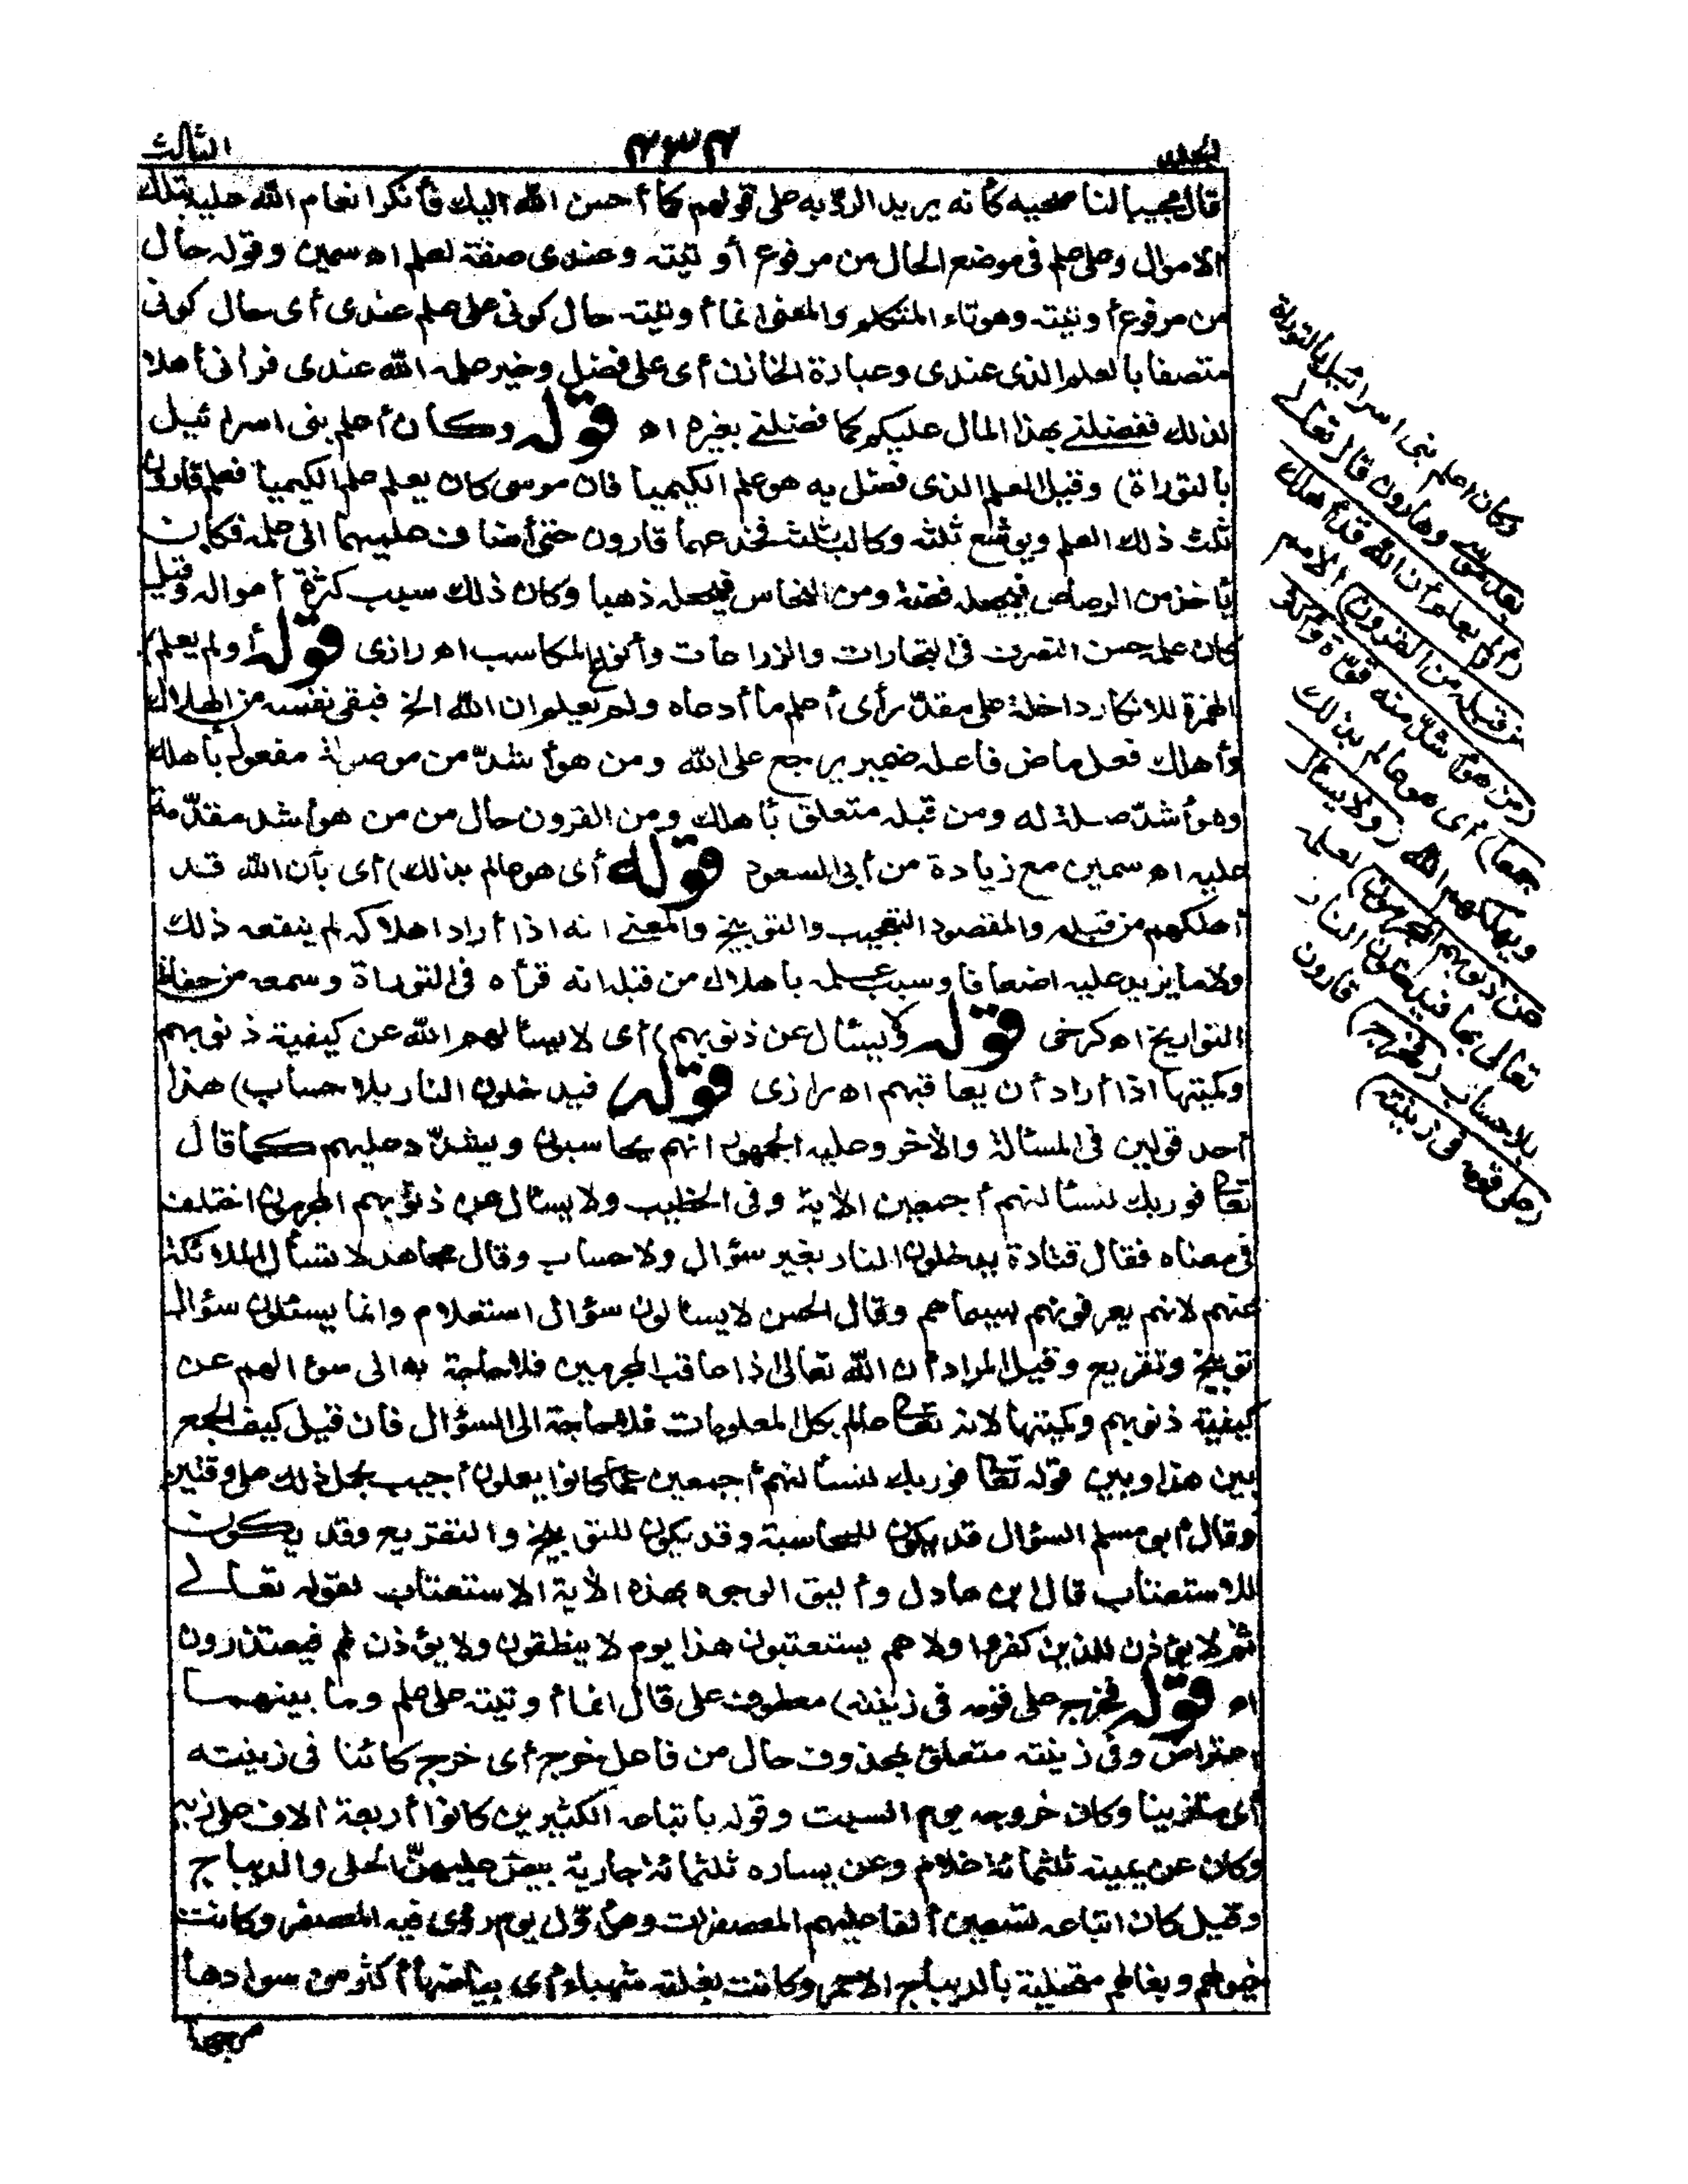 الجلد ٤٣٤ الثالث
قال مجيبا لناصحيه كأنه يريد الردّ به على قولهم كما أحسن الله اليك فأنكر انعام الله عليه بتلك
الاموال وعلى علم فى موضع الحال من مرفوع أوتيته وعندى صفة لعلم اه سمين وقوله حال
من مرفوع أوتيته وهو تاء المتكلم والمعنى انما أوتيته حال كونى على علم عندى أى حال كونى
متصفا بالعلم الذى عندى وعبارة الخازن أى على فضل وخير علمه الله عندى فرآنى أهلا
لذلك ففضلنى بهذا المال عليكم كما فضلنى بغيره اه قوله وكان أعلم بنى اسرائيل
بالتوراة) وقيل العلم الذى فضل به هو علم الكيميا فان موسى كان يعلم علم الكيميا فعلم قارون
ثلث ذلك العلم ويوشع ثلثه وكالب ثلثه فخدعهما قارون حتى أضاف علميهما الى علمه فكان
يأخذ من الرصاص فيجعله فضة ومن النحاس فيجعله ذهبا وكان ذلك سبب كثرة أمواله وقيل
كان علمه حسن التصرف فى التجارات والزراعات وأنواع المكاسب اه رازى قوله أولم يعلم)
الهمزة للانكار داخلة على مقدّر أى أعلم ما أدعاه ولم يعلم ان الله الخ فيبقى نفسه من الهلاك
وأهلك فعل ماض فاعله ضمير يرجع على الله ومن هو أشدّ من موصولة مفعول بأهلك
وهو أشدّ صلة له ومن قبله متعلق بأهلك ومن القرون حال من من هو أشد مقدّمة
عليه اه سمين مع زيادة من أبى السعود قوله أى هو عالم بذلك) أى بأن الله قد
أهلكهم من قبله والمقصود التعجيب والتوبيخ والمعنى انه اذا أراد اهلاكه لم ينفعه ذلك
ولا ما يزيد عليه اضعافا وسبب علمه باهلاك من قبله انه قرأه فى التوراة وسمعه من حفاظ
التواريخ اه كرخى قوله ولا يسئال عن ذنوبهم) أى لا يسألهم الله عن كيفية ذنوبهم
وكميتها اذا أراد أن يعاقبهم اه رازى قوله) فيدخلون النار بلا حساب) هذا
أحد قولين فى المسئالة والآخر وعليه الجمهور انهم يحاسبون ويشدّد عليهم كما قال
تعالى فوربك لنسئالنهم أجمعين الآية وفى الخطيب ولا يسئال عن ذنوبهم المجرمون اختلف
فى معناه فقال قتادة يدخلون النار بغير سؤال ولا حساب وقال مجاهد لا تسأل الملائكة
عنهم لانهم يعرفونهم بسيماهم وقال الحسن لا يسئالون سؤال استعلام وانما يسئلون سؤال
توبيخ وتقريع وقيل المراد أن الله تعالى اذا عاقب المجرمين فلا حاجة به الى سؤالهم عن
كيفية ذنوبهم وكميتها لانه تعالى عالم بكل المعلومات فلا حاجة الى السؤال فان قيل كيف الجمع
بين هذا وبين قوله تعالى فوربك لنسئالنهم أجمعين عما كانوا يعملون أجيب بحمل ذلك على وقتين
وقال أبو مسلم السؤال قد يكون للمحاسبة وقد يكون للتوبيخ والتقريع وقد يكون
للاستعتاب قال ابن عادل وأليق الوجوه بهذه الآية الاستعتاب لقوله تعالى
ثم لا يؤذن للذين كفروا ولا هم يستعتبون هذا يوم لا ينطقون ولا يؤذن لهم فيعتذرون
اه قوله فخرج على قومه فى زينته) معطوف على قال انما أوتيته على علم وما بينهما
اعتراض وفى زينته متعلق بمحذوف حال من فاعل خرج أى خرج كائنا فى زينته
أى متزينا وكان خروجه يوم السبت وقوله باتباعه الكثيرين كانوا أربعة آلاف على زيه
وكان عن يمينه ثلثمائة غلام وعن يساره ثلثمائة جارية بيض عليهنّ الحلى والديباج
وقيل كان اتباعه تسعين ألفا عليهم المعصفرات وهو أوّل يوم رؤى فيه المعصفر وكانت
خيولهم وبغالهم متحلية بالديباج الاحمر وكانت بغلته شهباء أى بياضها أكثر من سوادها
سرجها
وكان اعلم بنى اسرائيل بالتوراة
بعد موسى وهارون قال تعالى
(أولم يعلم أن الله قد أهلك
من قبله من القرون) الامم
(من هو أشدّ منه قوّة وأكثر
جمعا) أى هو عالم بذلك
ويهلكهم الله (ولا يسئال
عن ذنوبهم المجرمون) لعلمه
تعالى بها فيدخلون النار
بلا حساب (فخرج) قارون
(على قومه فى زينته)